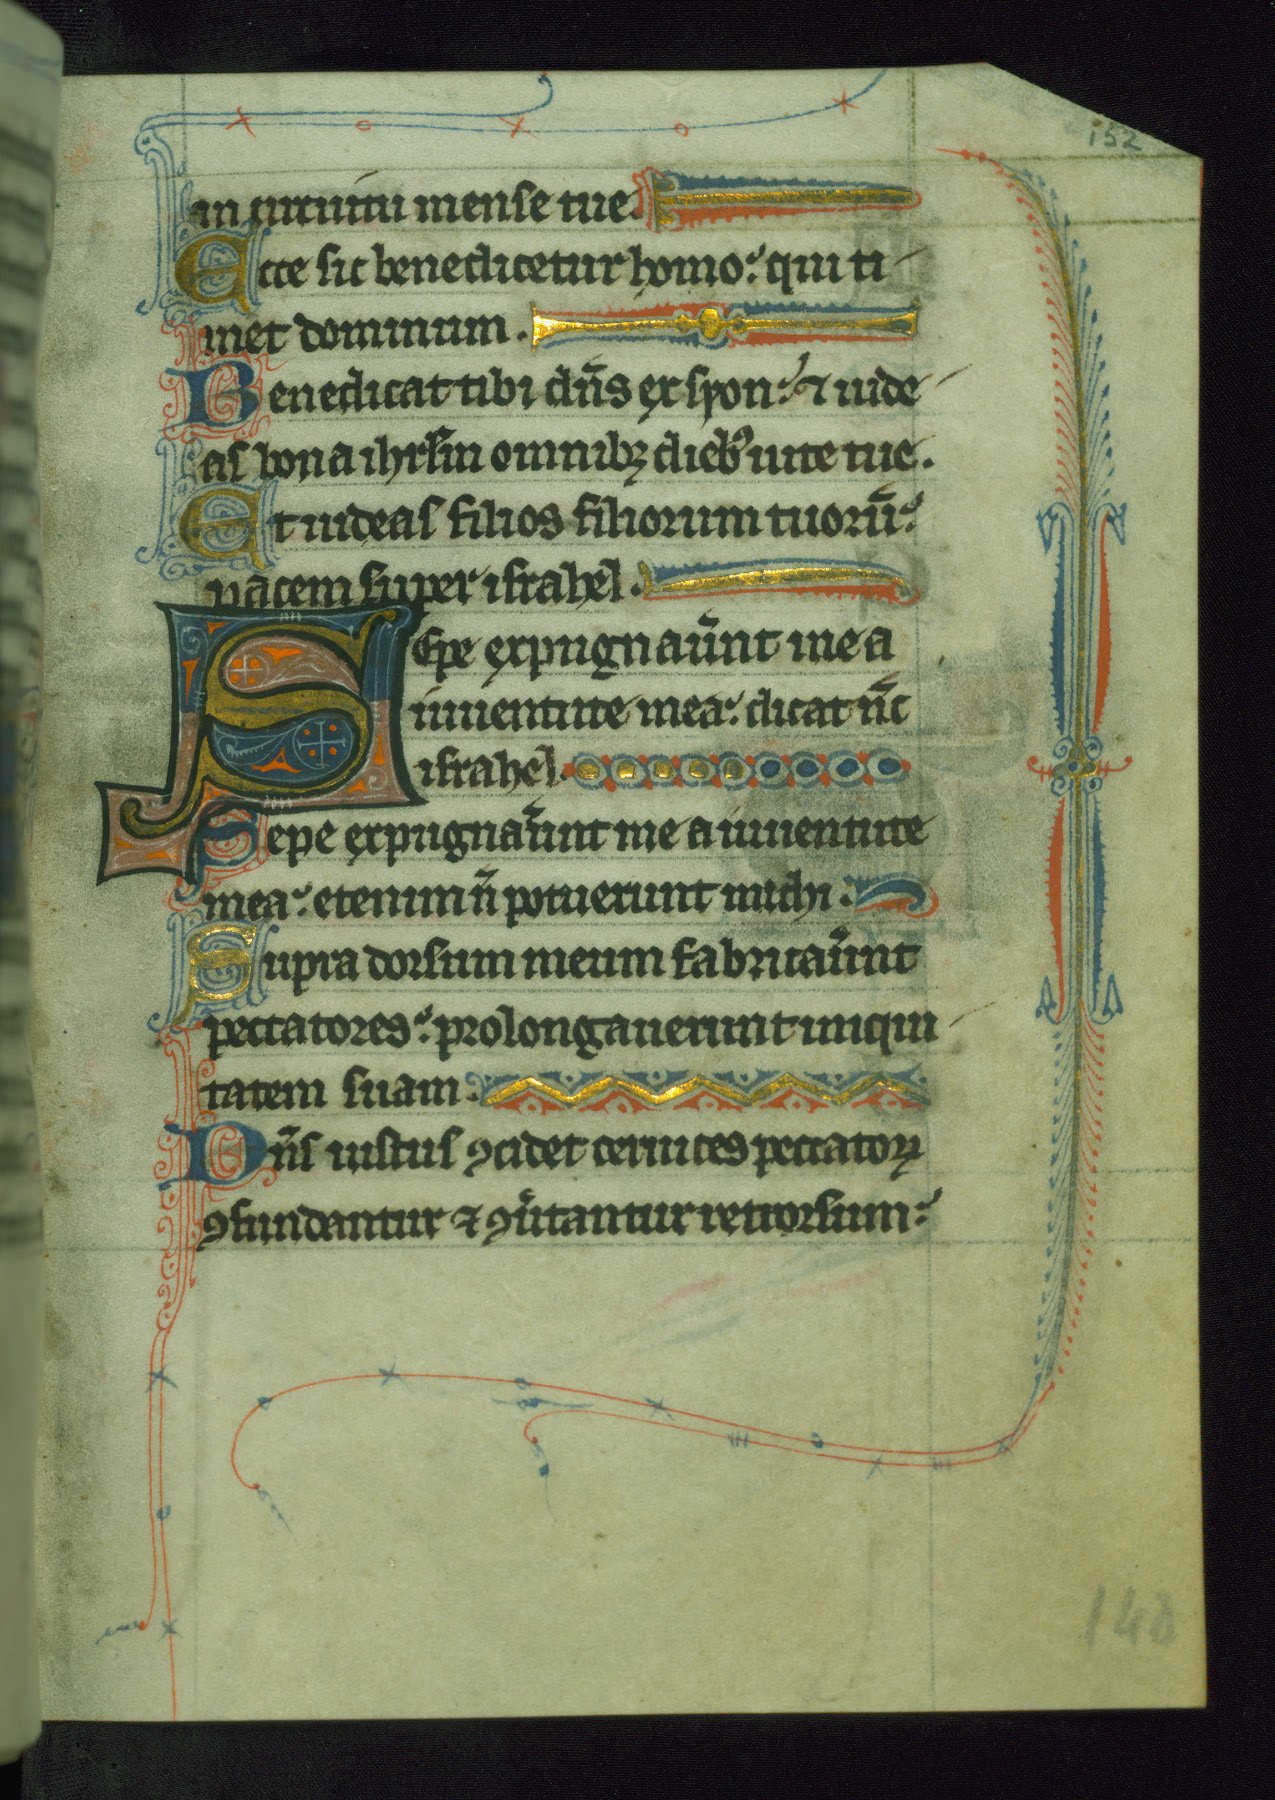 152
in circuitu mense tue
Ecce sic benedicetur homo: qui ti
met dominum.
Benedicat tibi dn̄s ex syon: ⁊ uide
as bona ihrl̄m omnibꝫ diebꝰ uite tue.
Et uideas filios filiorum tuorū:
pacem super israhel.
Sepe expugnaūnt me a
iuuentute mea: dicat nūc
israhel.
Sepe expugnaūnt me a iuuentute
mea: etenim n̄ potuerunt michi.
Supra dorsum meum fabricaūnt
peccatores: prolongauerunt iniqui
tatem suam.
Dn̄s iustus ꝯcidet ceruices peccatoꝝ
ꝯfundantur ⁊ ꝯūtantur retrorsum:
148